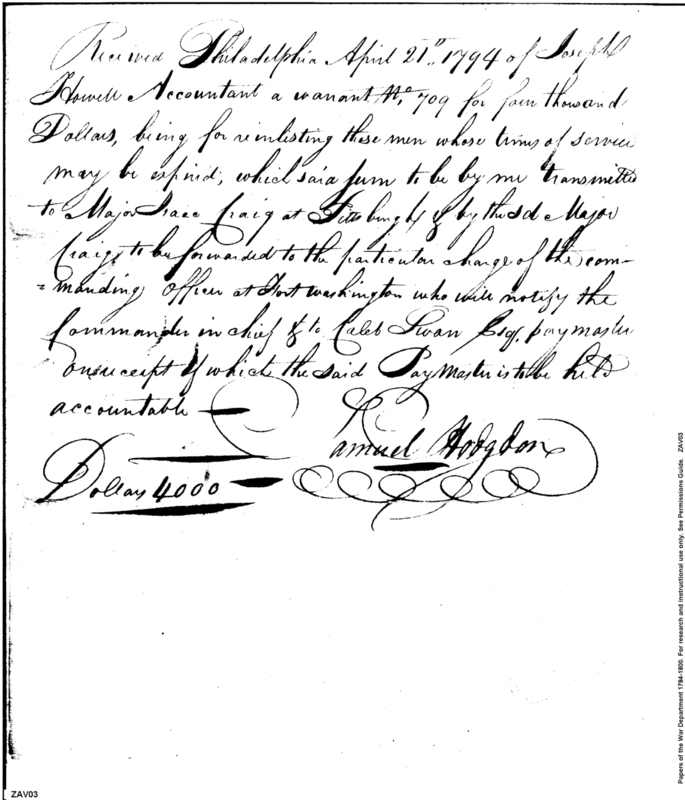 Received Philadelphia April 21st, 1794 of Joseph
Howell Accountant a warrant No. 709 for four thousand
Dollars, being for reinlisting those men whose times of service
may be expired, which said sum to be by me transmitted
to Major Isaac Craig at Pittsburgh & by the sd Major
Craig, to be forwarded to the particular charge of the com-
=manding officer at Fort Washington who will notify the
Commander in chief & to Caleb Swan Esqr. paymaster
on receipt of which the said PayMaster is to be held
accountable
Samuel Hodgdon
Dollars 4000
Papers of the War Department 1784-1800. For research and instructional use only. See Permissions Guide. ZAV03
ZAV03